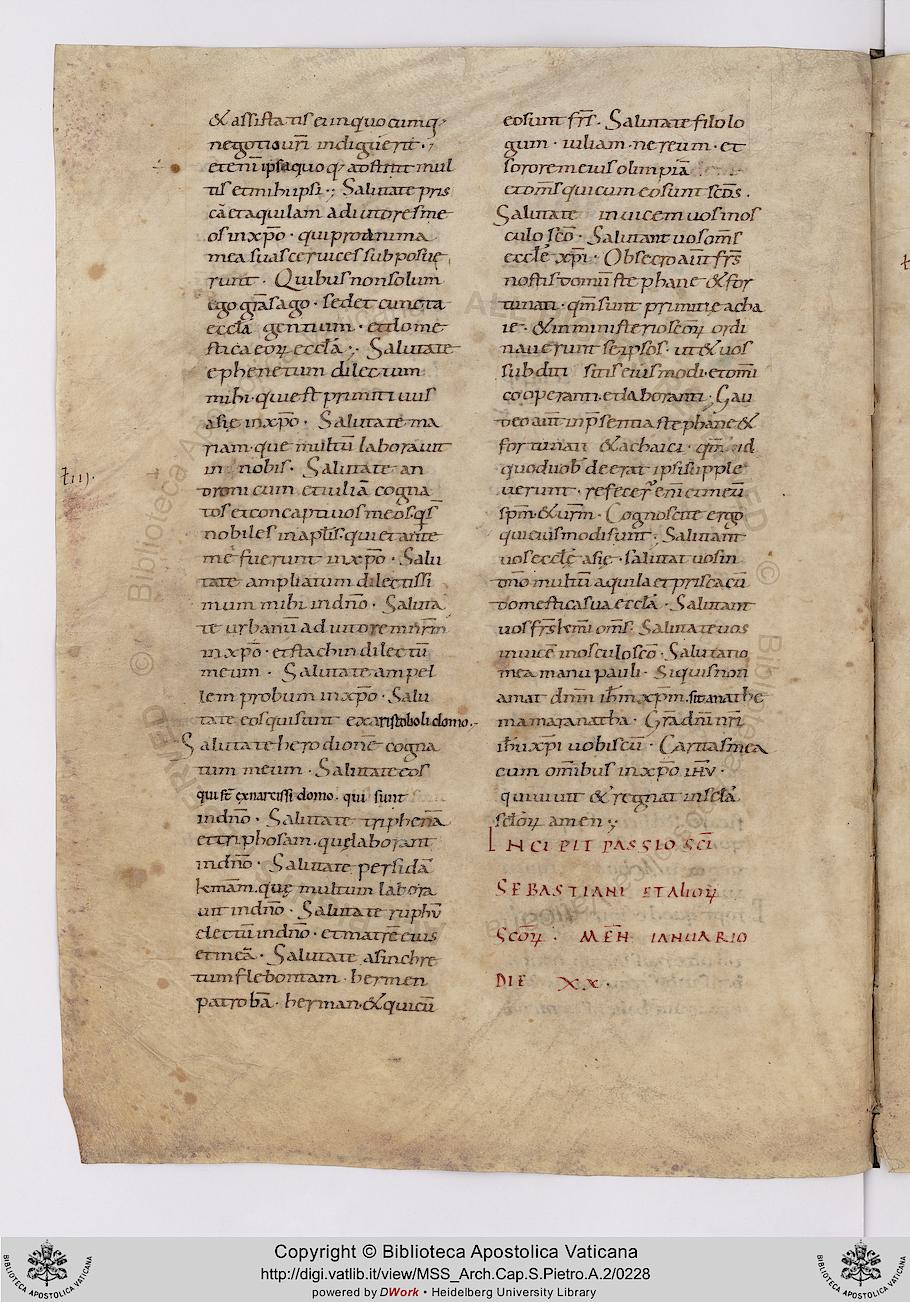 & assistatis ei inquocumq;
negotio ur̄i indiguerit ·;
eteni᷃ ipsa quoq; adstitit mul
tis etmihi ipsi ·; Salutate pris
cā etaquilam adiutores me
os inxp̄o · qui pro anima
mea suas cervices subposue
runt · Quibus nonsolum
ego gr̄as ago · sedet cuncta
eccłā gentium · etdome
stica eoꝝ eccłā ·; Salutate
ephenetum dilectum
mihi · qui est primitiuus
asię inxp̄o · Salutate ma
riam · que multū laborauit
in nobis · Salutate an
dronicum et iuliā cogna
tos et concaptiuos meos · q̄s
nobiles in apl̄is · qui et ante
me fuerunt inxp̄o · Salu
tate ampliatum dilectissi
mum mihi indn̄o · Saluta
te urbanū adiutorem nr̄m
inxp̄o · et stachin dilectū
meum · Salutate ampel
lem probum inxp̄o · Salu
tate eos qui sunt ex aristoboli domo ·
Salutate herodionē cogna
tum meum · Salutate eos
qui s̄t ex narcissi domo · qui sunt
indn̄o · Salutate triphenā
et triphosam · quę laborant
indn̄o · Salutate persidā
kmām · quę multum labora
uit indn̄o · Salutate ruphū
electū indn̄o · et matrē eius
et meā · Salutate asinchre
tum flebontam · hermen
patrobā · herman · & qui cū
ť III ·
eo sunt fr̄s · Salutate filolo
gum · iuliam · nereum · et
sororem eius olimpiā
et om̄s qui cum eo sunt sc̄ōs ·
Salutate inuicem uos inos
culo sc̄o · Salutant uos om̄s
eccłe xp̄i · Obsecro aut̄ fr̄s
nostis domū stephane & for
tunati · qm̄ sunt primitię acha
ie · & in ministerio sc̄oꝝ ordi
nauerunt seipsos · ut & uos
subditi sitis eiusmodi · et om̄i
cooperanti · et laboranti · Gau
deo aut̄ in p̄sentia stephane &
fortunati & achaici · qm̄ id
quod uob᷒ deerat ipsi supple
uerunt · refecer̄ eni᷃ et meū
sp̄m · & ur̄m · Cognoscite ergo
qui eiusmodi sunt · Salutant
uos eccłę asię · salutat uos in
dn̄o multū aquila et prisca cū
domestica sua eccłā · Salutant
uos fr̄s kmi om̄s · Salutate uos
inuicē inosculo sc̄o · Salutatio
mea manu pauli · Siquis non
amat dn̄m ih̄m xp̄m · sit anathe
ma maranatha · Gr̄a dn̄i nr̄i
ih̄u xp̄i uobiscū · Caritas mea
cum om̄ibus inxp̄o ih̄v ·
qui uiuit & regnat in sc̄łā
sc̄łoꝝ amen ·;
INCIPIT PASSIO SC̄I
SEBASTIANI ET ALIOꝝ
SC̄Oꝝ · MEN̄ IANUARIO
DIE XX ·
Copyright © Biblioteca Apostolica Vaticana
http://digi.vatlib.it/view/MSS_Arch.Cap.S.Pietro.A.2/0228
powered by DWork • Heidelberg University Library
BIBLIOTECA APOSTOLICA VATICANA
BIBLIOTECA APOSTOLICA VATICANA